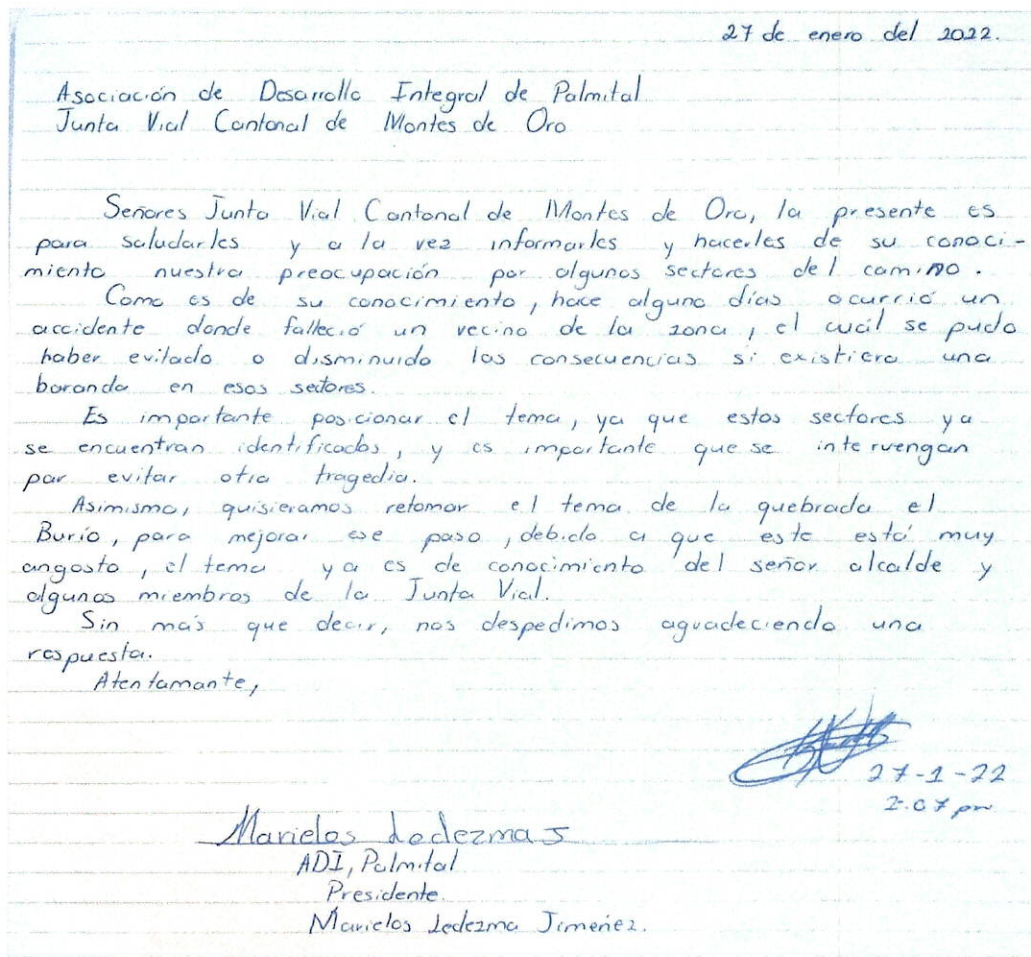 27 de enero del 2022.
Asociación de Desarrollo Integral de Palmital
Junta Vial Cantonal de Montes de Oro
Señores Junta Vial Cantonal de Montes de Oro, la presente es
para saludarles y a la vez informarles y hacerles de su conoci-
miento nuestra preocupación por algunos sectores del camino.
Como es de su conocimiento, hace alguno días ocurrió un
accidente donde falleció un vecino de la zona, el cuál se pudo
haber evitado o disminuido las consecuencias si existiera una
baranda en esos sectores.
Es importante posicionar el tema, ya que estos sectores ya
se encuentran identificados, y es importante que se intervengan
por evitar otra tragedia.
Asimismo, quisieramos retomar el tema de la quebrada el
Burío, para mejorar ese paso, debido a que este está muy
angosto, el tema ya es de conocimiento del señor alcalde y
algunos miembros de la Junta Vial.
Sin más que decir, nos despedimos aguadeciendo una
respuesta.
Atentamante,
27-1-22
2:07 pm
Marielos Ledezma J
ADI, Palmital
Presidente.
Marielos Ledezma Jimenez.